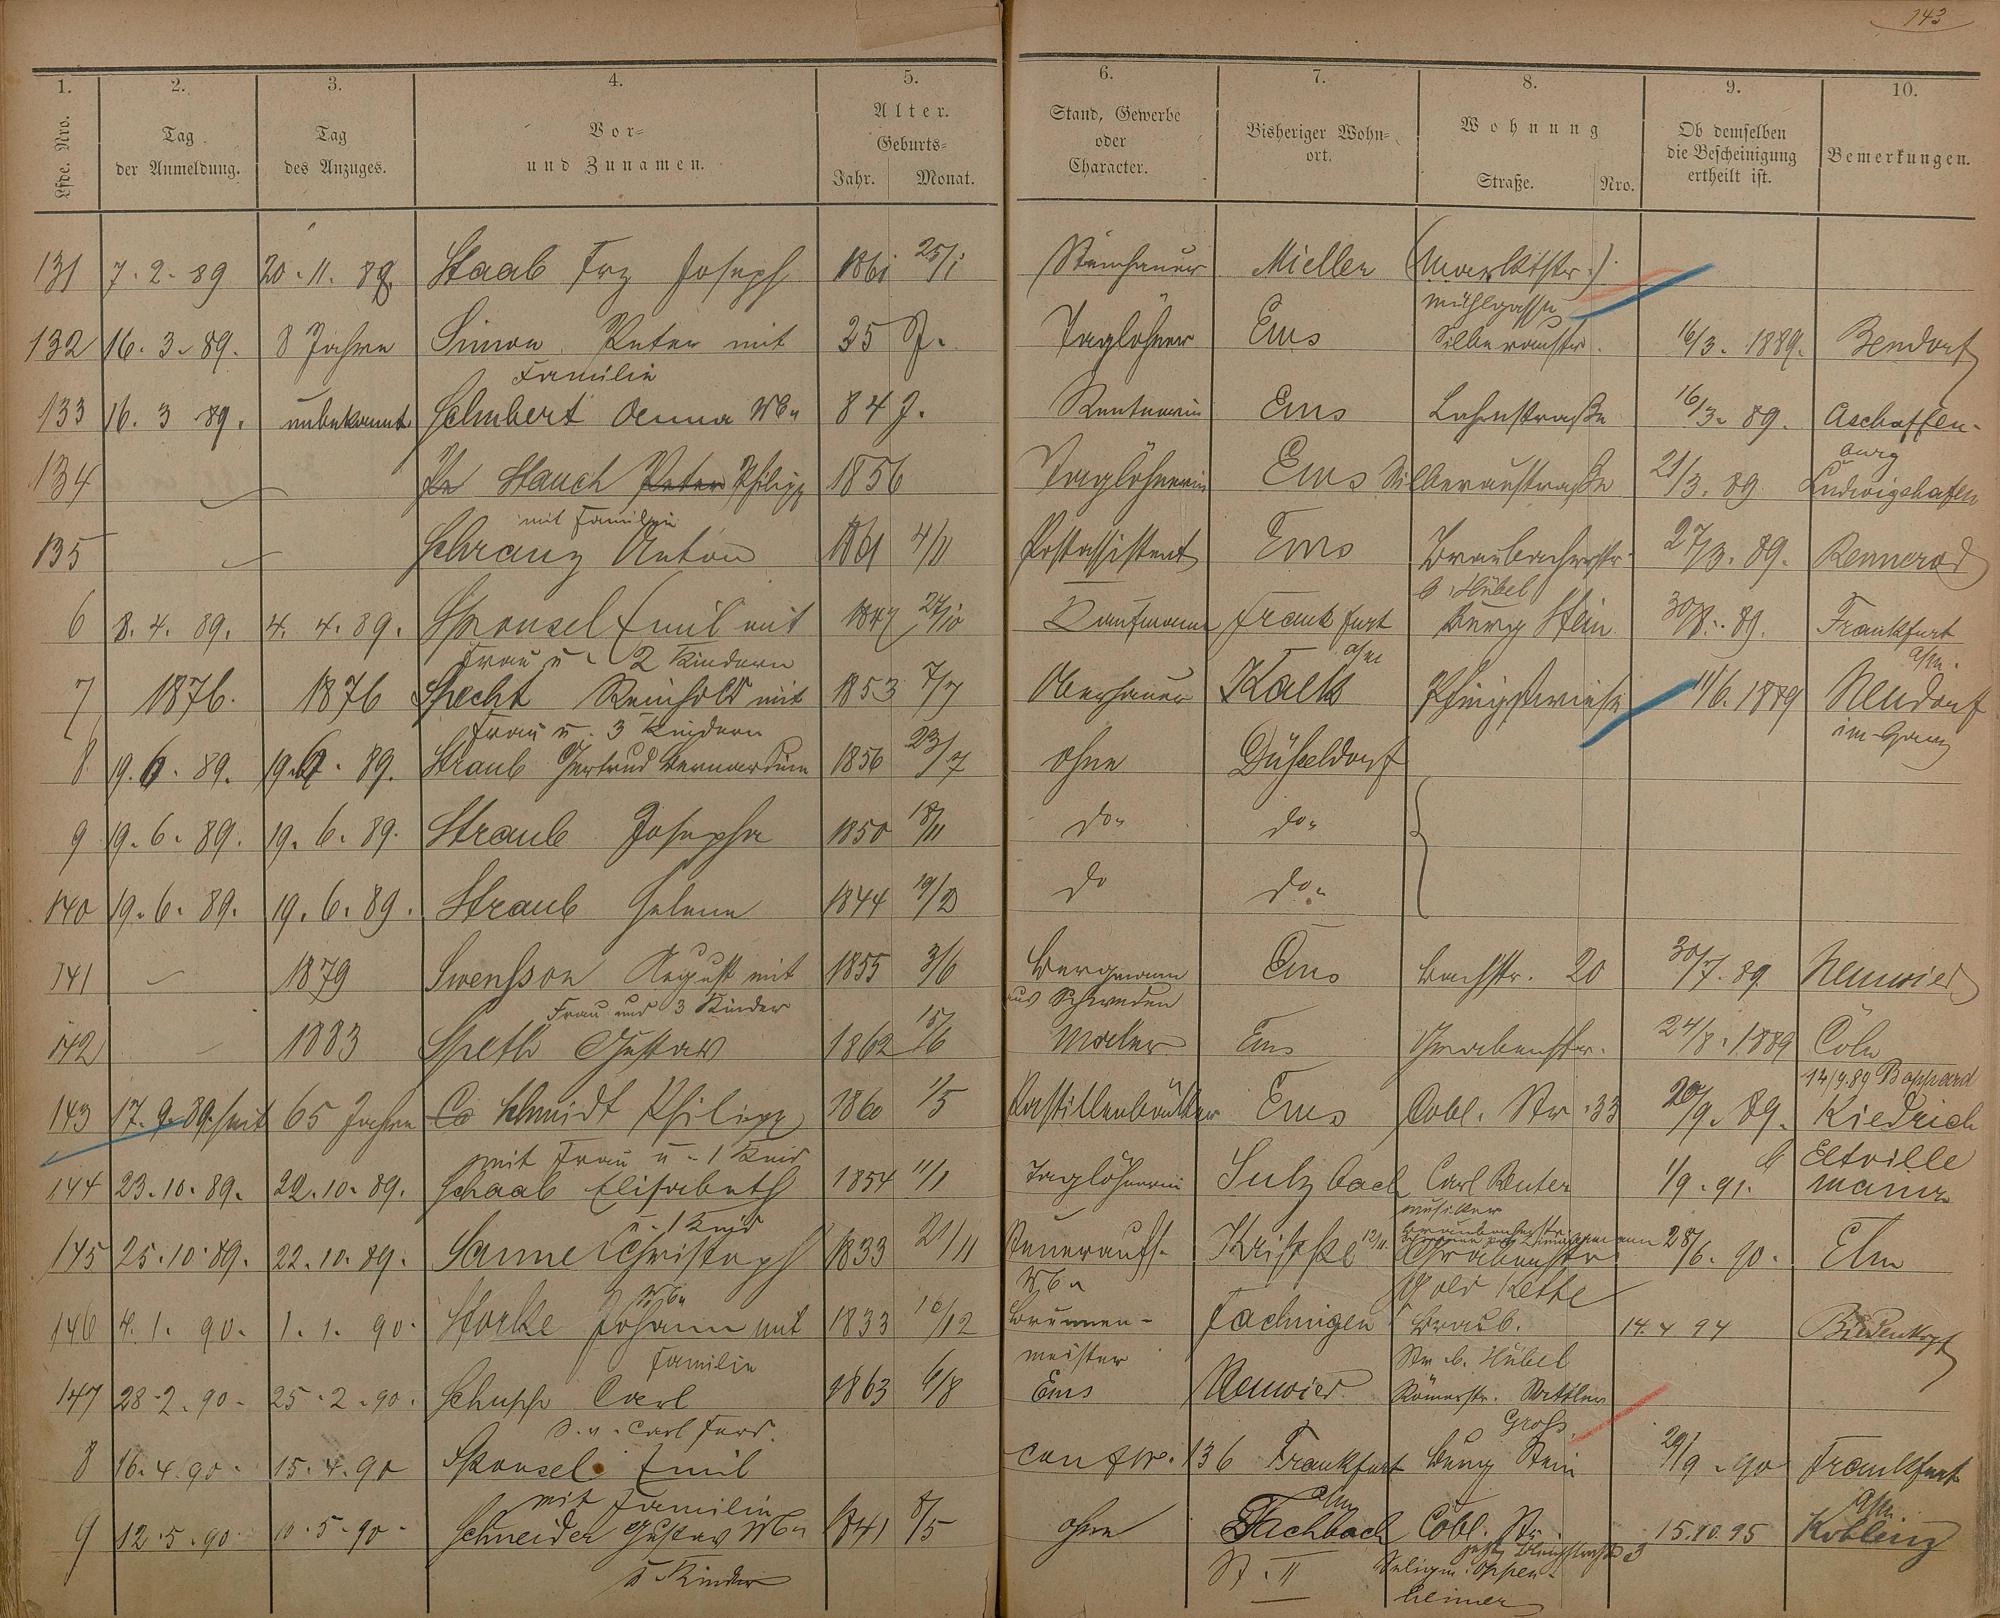 143
1. 2. 3. 4. 5. 6. 7. 8. 9. 10.
Lfde. Nro.
Tag der Anmeldung.
Tag des Anzuges.
Vor- und Zunamen.
Alter.
Geburts-
Jahr. Monat.
Stand, Gewerbe oder Character.
Bisheriger Wohn-ort.
Wohnung
Straße. Nro.
Ob demselben die Bescheinigung ertheilt ist.
Bemerkungen.
131 7.2.89 20.11.88 Staab Frz Joseph 1861 25/1 Steinhauer Miellen (Marktstr.)
Mühlgasse
132 16.3.89. 8 Jahre Simon Peter mit 25 J. Taglöhner Ems Silberaustr. 16/3. 1889. Bendorf
Familie
133 16.3.89. unbekannt Schubert Anna Ww 84 J. Rentnerin Ems Lahnstraße 16/3. 89. Aschaffen-
burg
134 Stauch Peter Philipp 1856 Taglöhnerin Ems Silberaustraße 21/3. 89. Ludwigshafen
mit Familie
135 Schranz Anton 1861 4/11 Postassistent Ems Braubacherstr. 27/3. 89. Rennerod
b. Hübel
6 8.4.89. 4.4.89. Sponsel Emil mit 1847 27/10 Kaufmann Frankfurt Burg Stein 30/8. 89. Frankfurt
Frau u. 2 Kindern a/M a/M.
7 1876. 1876 Specht Reinhold mit 1853 7/7 Oberhauer Kalk Pfingstwiese 11/6. 1889 Neudorf
Frau u. 3 Kindern
8 19.6.89. 19.6.89. Straub Gertrud Bernardine 1856 23/7 ohne Düsseldorf
9 19.6.89. 19.6.89. Straub Josepha 1850 18/11 do. do.
140 19.6.89. 19.6.89. Straub Helene 1844 19/2 do do.
141 1879 Swensson August mit 1855 3/6 Bergmann Ems Bachstr. 20 30/7. 89 Neuwied
Frau und 3 Kinder aus Schweden
142 1883 Speth Gustav 1862 15/6 Maler Ems Grabenstr. 24/8. 1889 Cöln
14/9.89 Boppard
143 17.9.89. seit 65 Jahren Schmidt Philipp 1860 1/5 Pastillenbäcker Ems Cobl. Str. 33 20/9. 89. Kiedrich
mit Frau u. 1 Kind b Eltville
144 23.10.89. 22.10.89. Schaab Elisabeth 1854 11/1 Taglöhnerin Sulzbach Carl Reuter 1/9. 91. Mainz
u. 1 Kind Musiker
145 25.10.89. 22.10.89. Sanne Christoph 1833 21/11 Steueraufs. Grabenstr 28/6. 90. Elm
Ww Gold Kette
146 4.1.90. 1.1.90. Storke Johann mit 1833 16/12 Brunnen- Fachingen Braub. 14.4 94 Biedenkopf
Familie meister Str. b. Hübel
147 28.2.90. 25.2.90. Schupp Carl 1863 6/8 Ems Neuwied Römerstr.
S. v. Carl Ferd.
8 16.4.90. 15.4.90 Sponsel Emil conf. Nr. 136 Frankfurt Burg Stein 29/9. 90 Frankfurt
mit Familie a/M a/M.
9 12.5.90 10.5.90. Schneider Gustav Ww 1841 8/5 ohne Fachbach Cobl. Str. 15.10.95 Koblenz
u. Kinder St. II jetzt Bleichstraße 3
Seligm. Oppen-
heimer